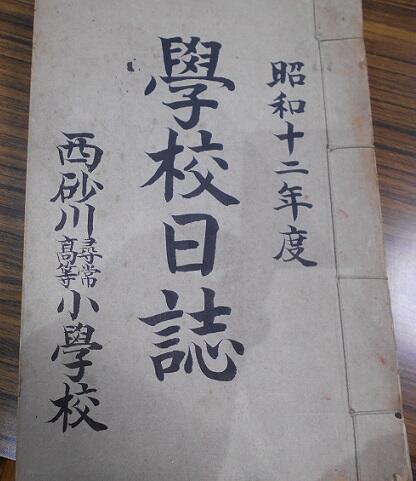 昭和十二年度
學校日誌
西砂川尋常高等小學校